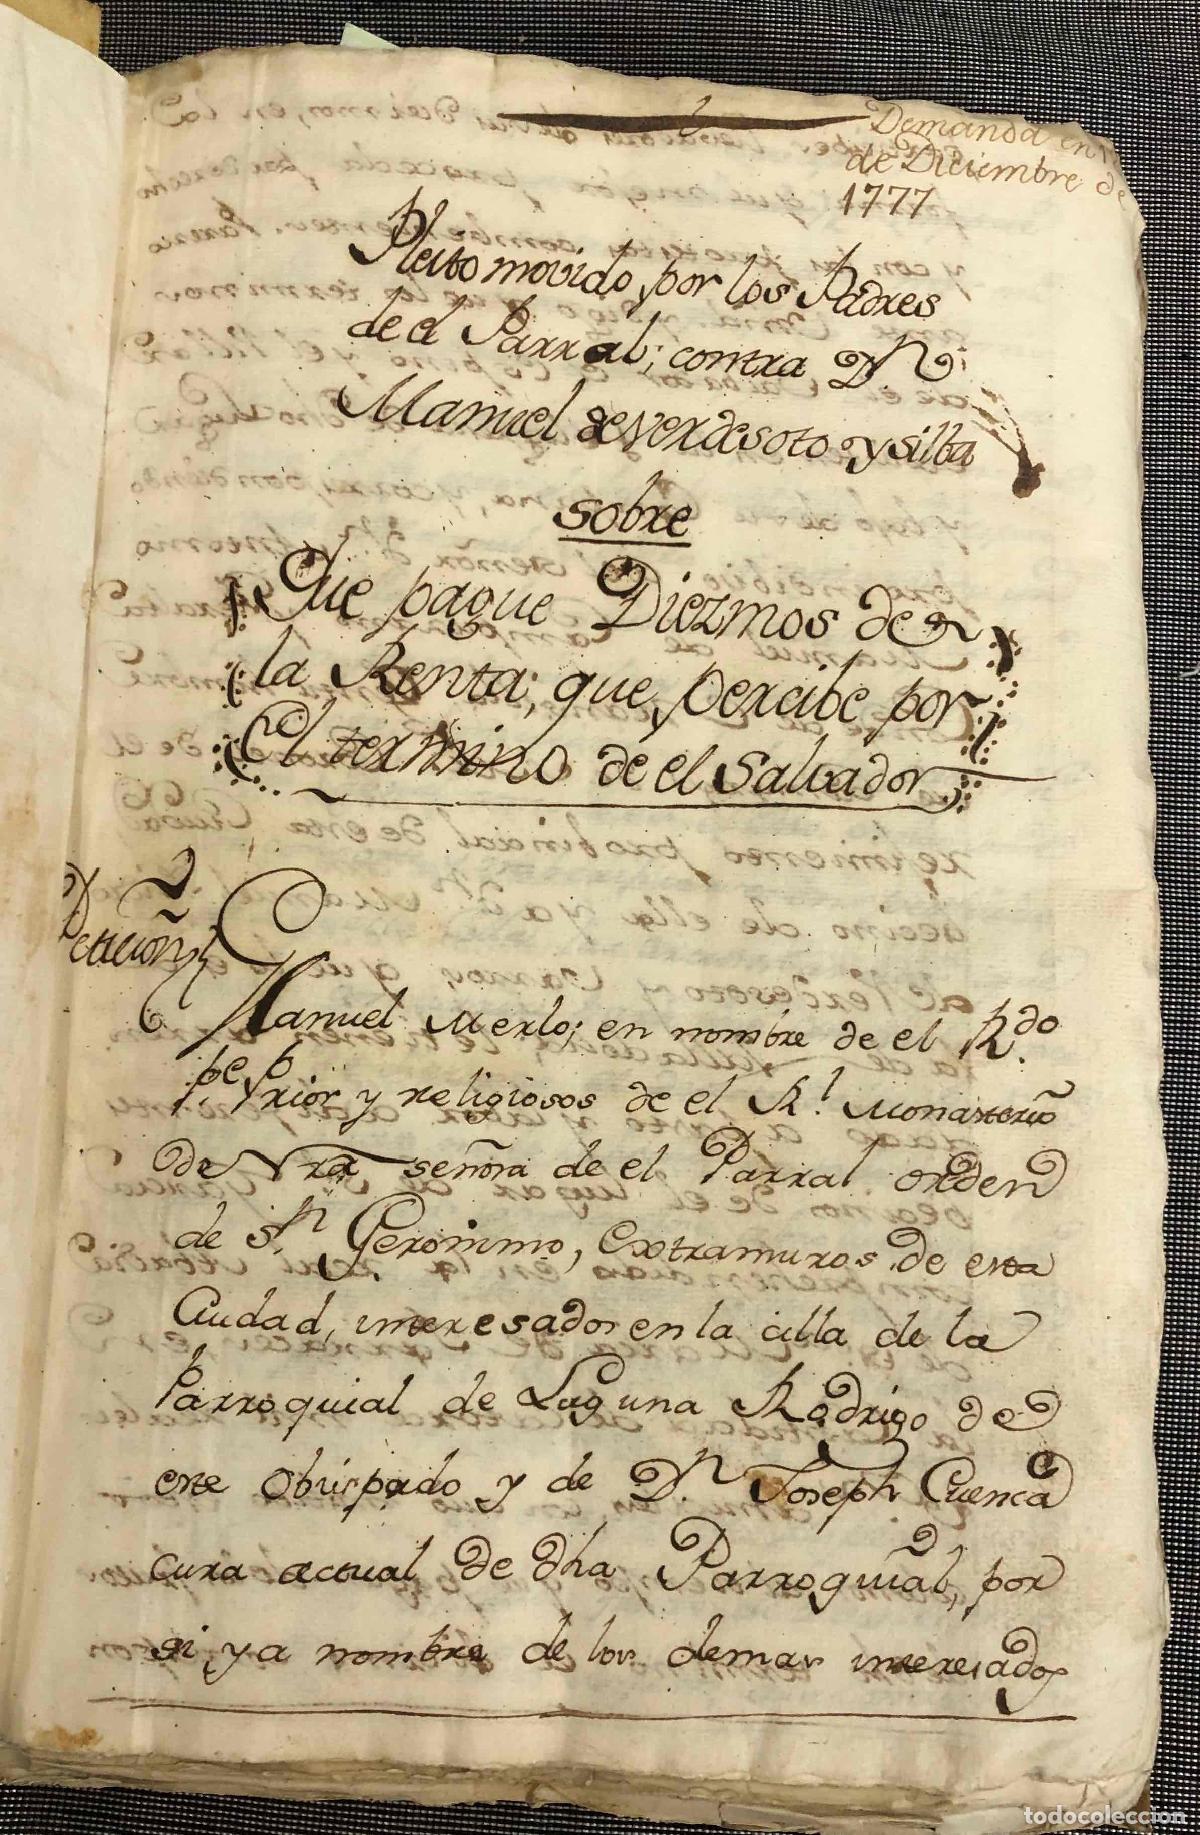 Demanda en
de Diciembre de
1777
Pleito movido, por los Padres
de el Parral; contra Dn
Manuel de verdesoto y silba
sobre
Que pague Diezmos de
la Renta; que, percibe por
el termino de el Salvador
Peticion
Manuel Merlo; en nombre de el Rdo.
Pe Prior y religiosos de el Rl. Monasterio
de Nra señora de el Parral orden
de Sn. Geronimo, extramuros de esta
Ciudad, interesados en la cilla de la
Parroquial de Laguna Rodrigo de
este Obispado y de Dn. Joseph Cuenca
cura actual de dha Parroquial, por
si, y a nombre de los demas interesados
todocoleccion